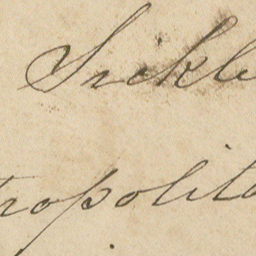 Sickle
tropolita